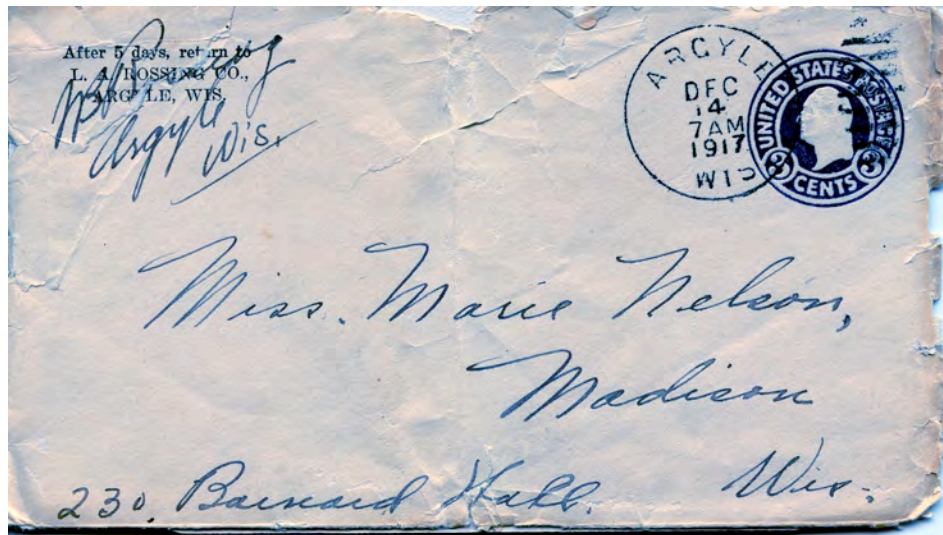 After 5 days, return to
L. A. ROSSING CO.,
ARGYLE, WIS.
Rossing
Argyle
Wis.
ARGYLE
DEC
14
7AM
1917
WIS
UNITED STATES POSTAGE
3 CENTS 3
Miss. Marie Nelson,
Madison
Wis.
230. Barnard Hall.